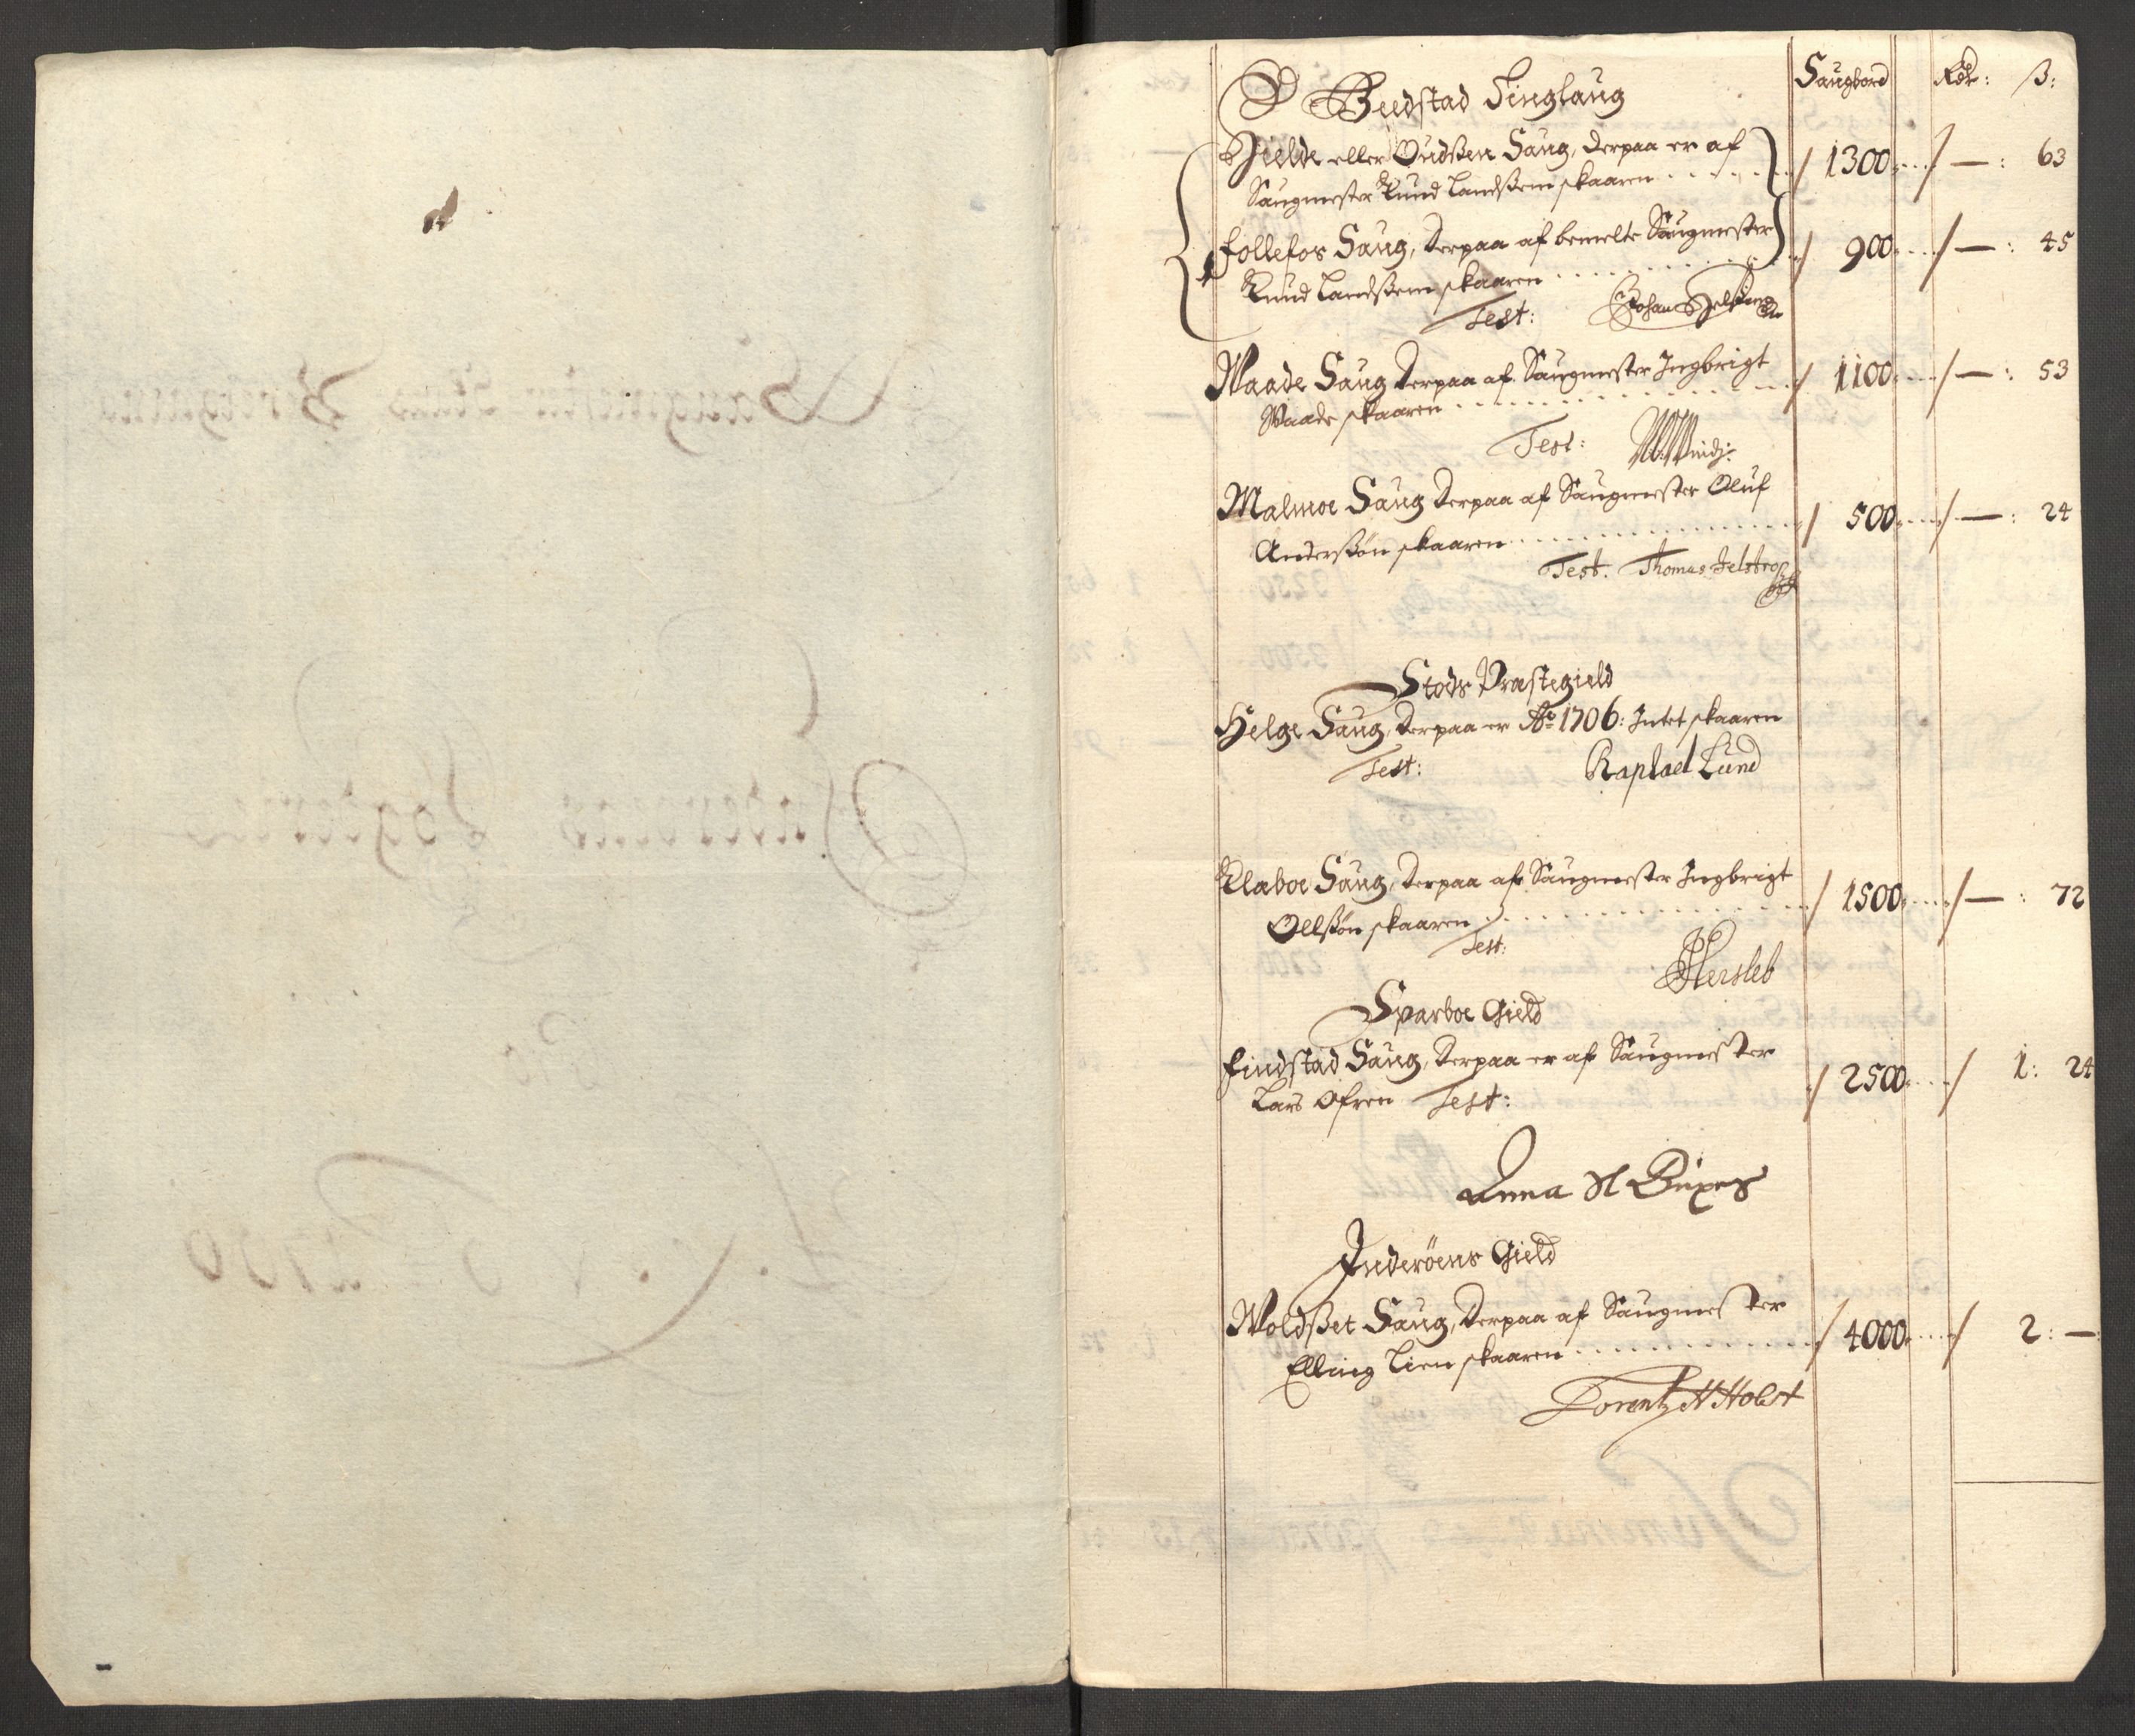 Saugbord Rdr: ß:
Beedstad Tinglaug
Hielde eller Oudßen Saug, derpaa er af
Saugmester Knud Landßem skaaren 1300 — : 63
Follefos Saug, derpaa af bemelte Saugmester
Knud Landßem skaaren 900 — : 45
Test: Johan
Waade Saug derpaa af Saugmester Ingbrigt
Waade skaaren 1100 — : 53
Test:
Malmoe Saug derpaa af Saugmester Oluf
Anderßön skaaren 500 — : 24
Test. Thomas Jelstrop
Stods Præstegield
Helge Saug, derpaa er Ao 1706: Intet skaaren
Test: Raphael Lund
Klaboe Saug, derpaa af Saugmester Ingbrigt
Ollßön skaaren 1500 — : 72
Test: Hersleb
Sparboe Gield
Findstad Saug, derpaa er af Saugmester
Lars Ofren 2500 1: 24
Test:
Anna Sl
Inderöens Gield
Woldßet Saug, derpaa af Saugmester
Elling Lien skaaren 4000 2: —
Lorentz H Holst